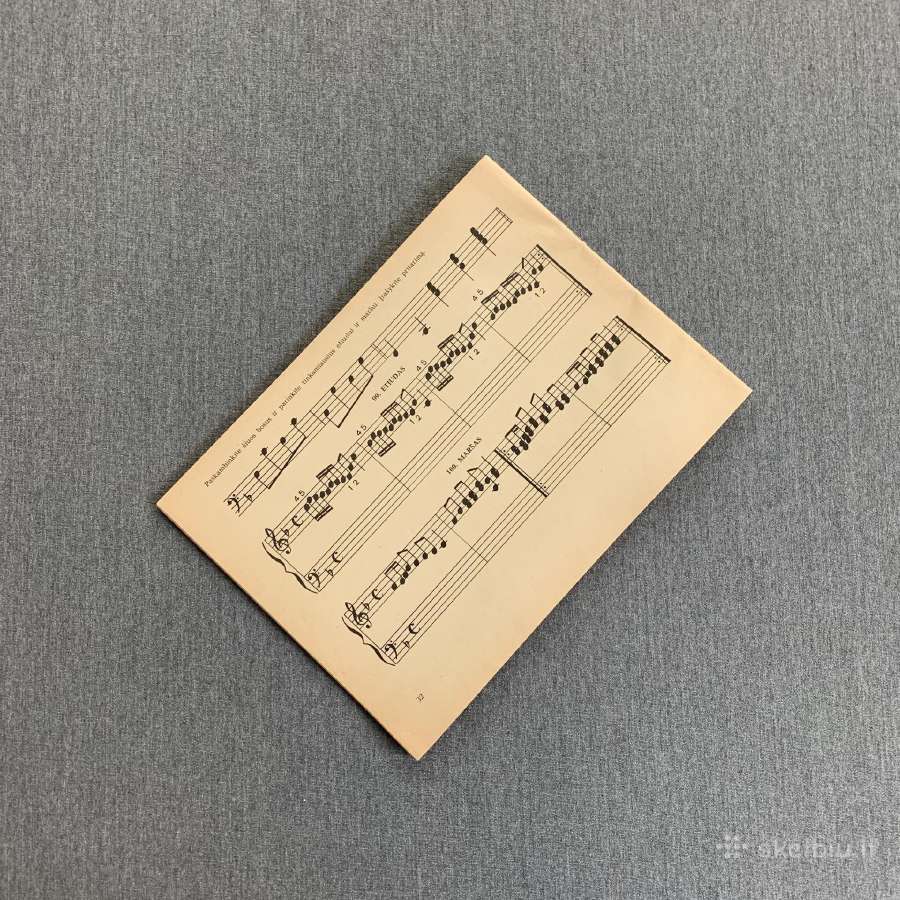 Paskambinkite šiuos bosus ir parinkite tinkamiausius etiudui ir maršui. Įrašykite pritarimą.
99. ETIUDAS
4 5 4 5 4 5 4 5
1 2 1 2 1 2 1 2
100. MARŠAS
32
skelbiu.lt